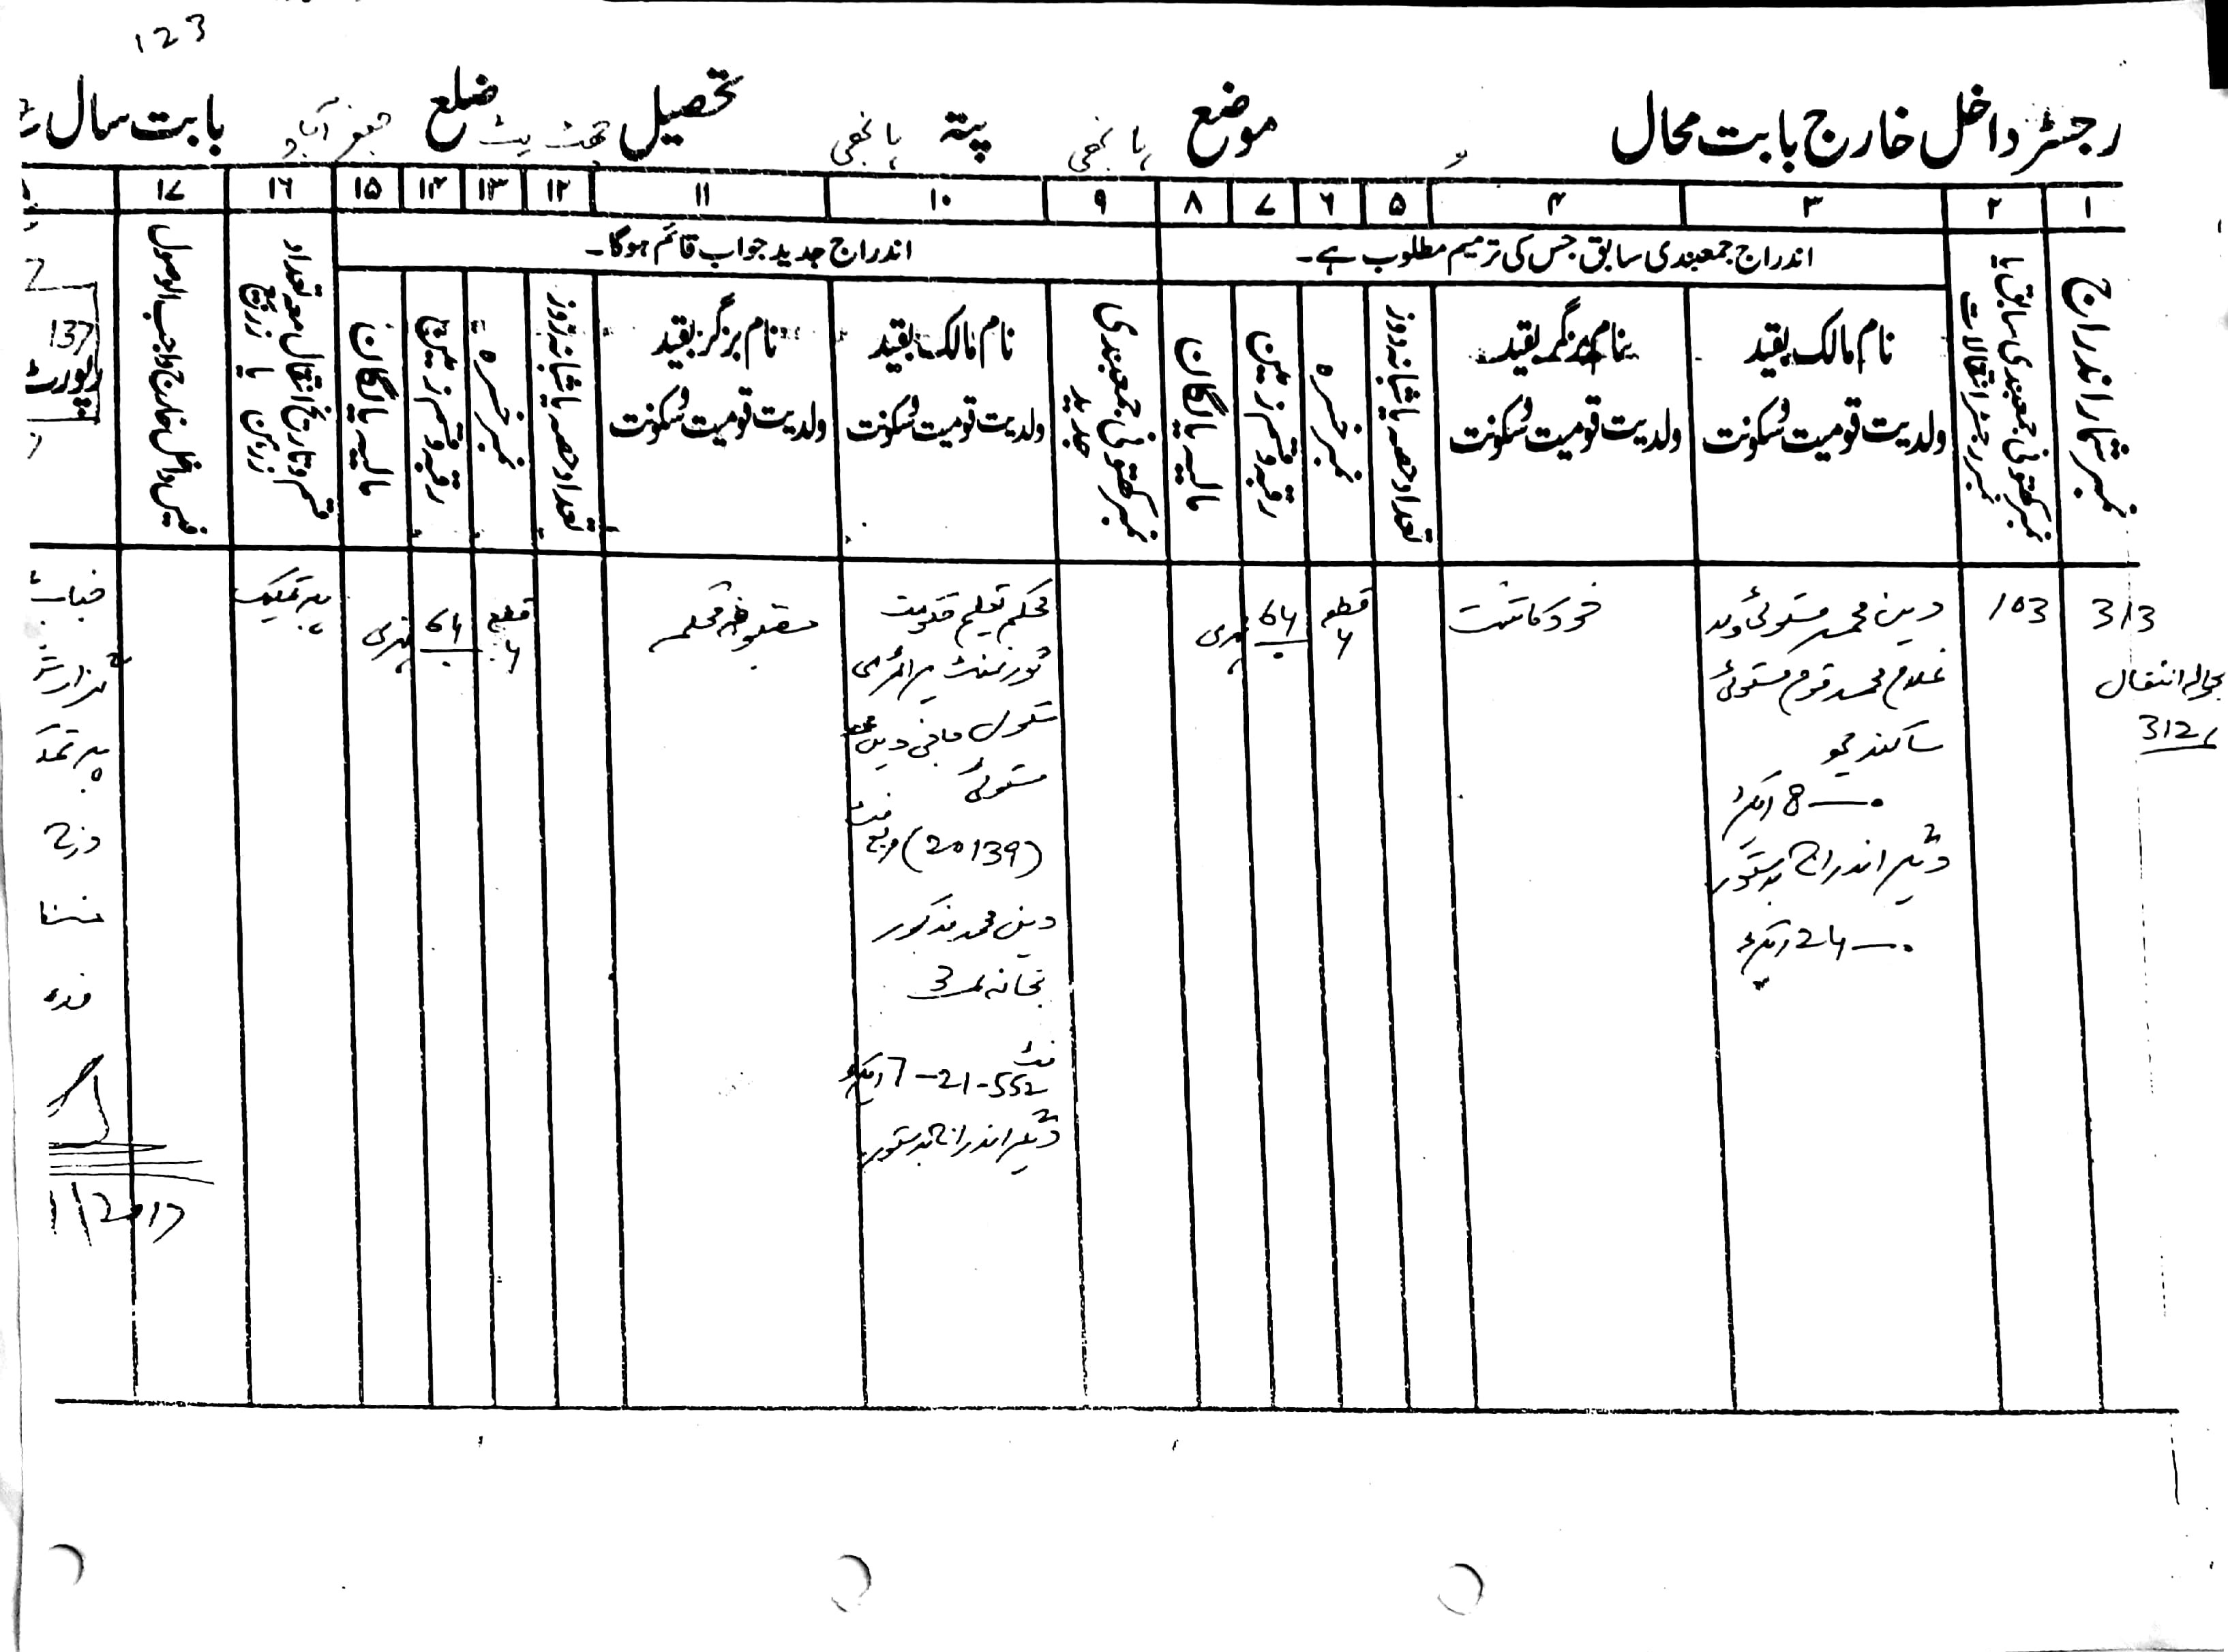 123
رجسٹر داخل خارج بابت محال موضع بانجھی پتہ بانجھی تحصیل جھٹ پٹ ضلع جعفر آباد بابت سال
۱ ۲ ۳ ۴ ۵ ۶ ۷ ۸ ۹ ۱۰ ۱۱ ۱۲ ۱۳ ۱۴ ۱۵ ۱۶ ۱۷
اندراج جمعبندی سابق جس کی ترمیم مطلوب ہے۔
اندراج جدید جو اب قائم ہوگا۔
نمبر شمار اندراج
نمبر کھتونی جمعبندی سابق یا
نمبر رجسٹر انتقالات
نام مالک بقید
ولدیت قومیت سکونت
نام بزگر بقید
ولدیت قومیت سکونت
تعداد حصہ یا شبانہ روز
نمبر خسرہ
رقبہ و قسم زمین
مالیہ یا لگان
نمبر کھتونی جمعبندی
جدید
نام مالک بقید
ولدیت قومیت سکونت
نام بزگر بقید
ولدیت قومیت سکونت
تعداد حصہ یا شبانہ روز
نمبر خسرہ
رقبہ و قسم زمین
مالیہ یا لگان
قسم و تاریخ انتقال معہ تعداد
زر رہن یا زر بیع
فیس داخل خارج واجب الوصول
137
رپورٹ
313
بحوالہ انتقال
312
103
دین محمد مستوئی ولد
غلام محمد قوم مستوئی
ساکندیہ
8 ایکڑ
دیگر اندراج بدستور
24 ایکڑ
خود کاشت
قطعہ
4
64
نہری
محکمہ تعلیم حکومت
گورنمنٹ پرائمری
سکول حاجی دین محمد
مستوئی
(20139) مربع فٹ
دین محمد مذکور
بخانہ 3
فٹ
7-21-552 ایکڑ
دیگر اندراج بدستور
مقبوضہ محکمہ
قطعہ
4
64
نہری
ہبہ تملیک
جناب
گزارش
ہبہ تملیک
درج